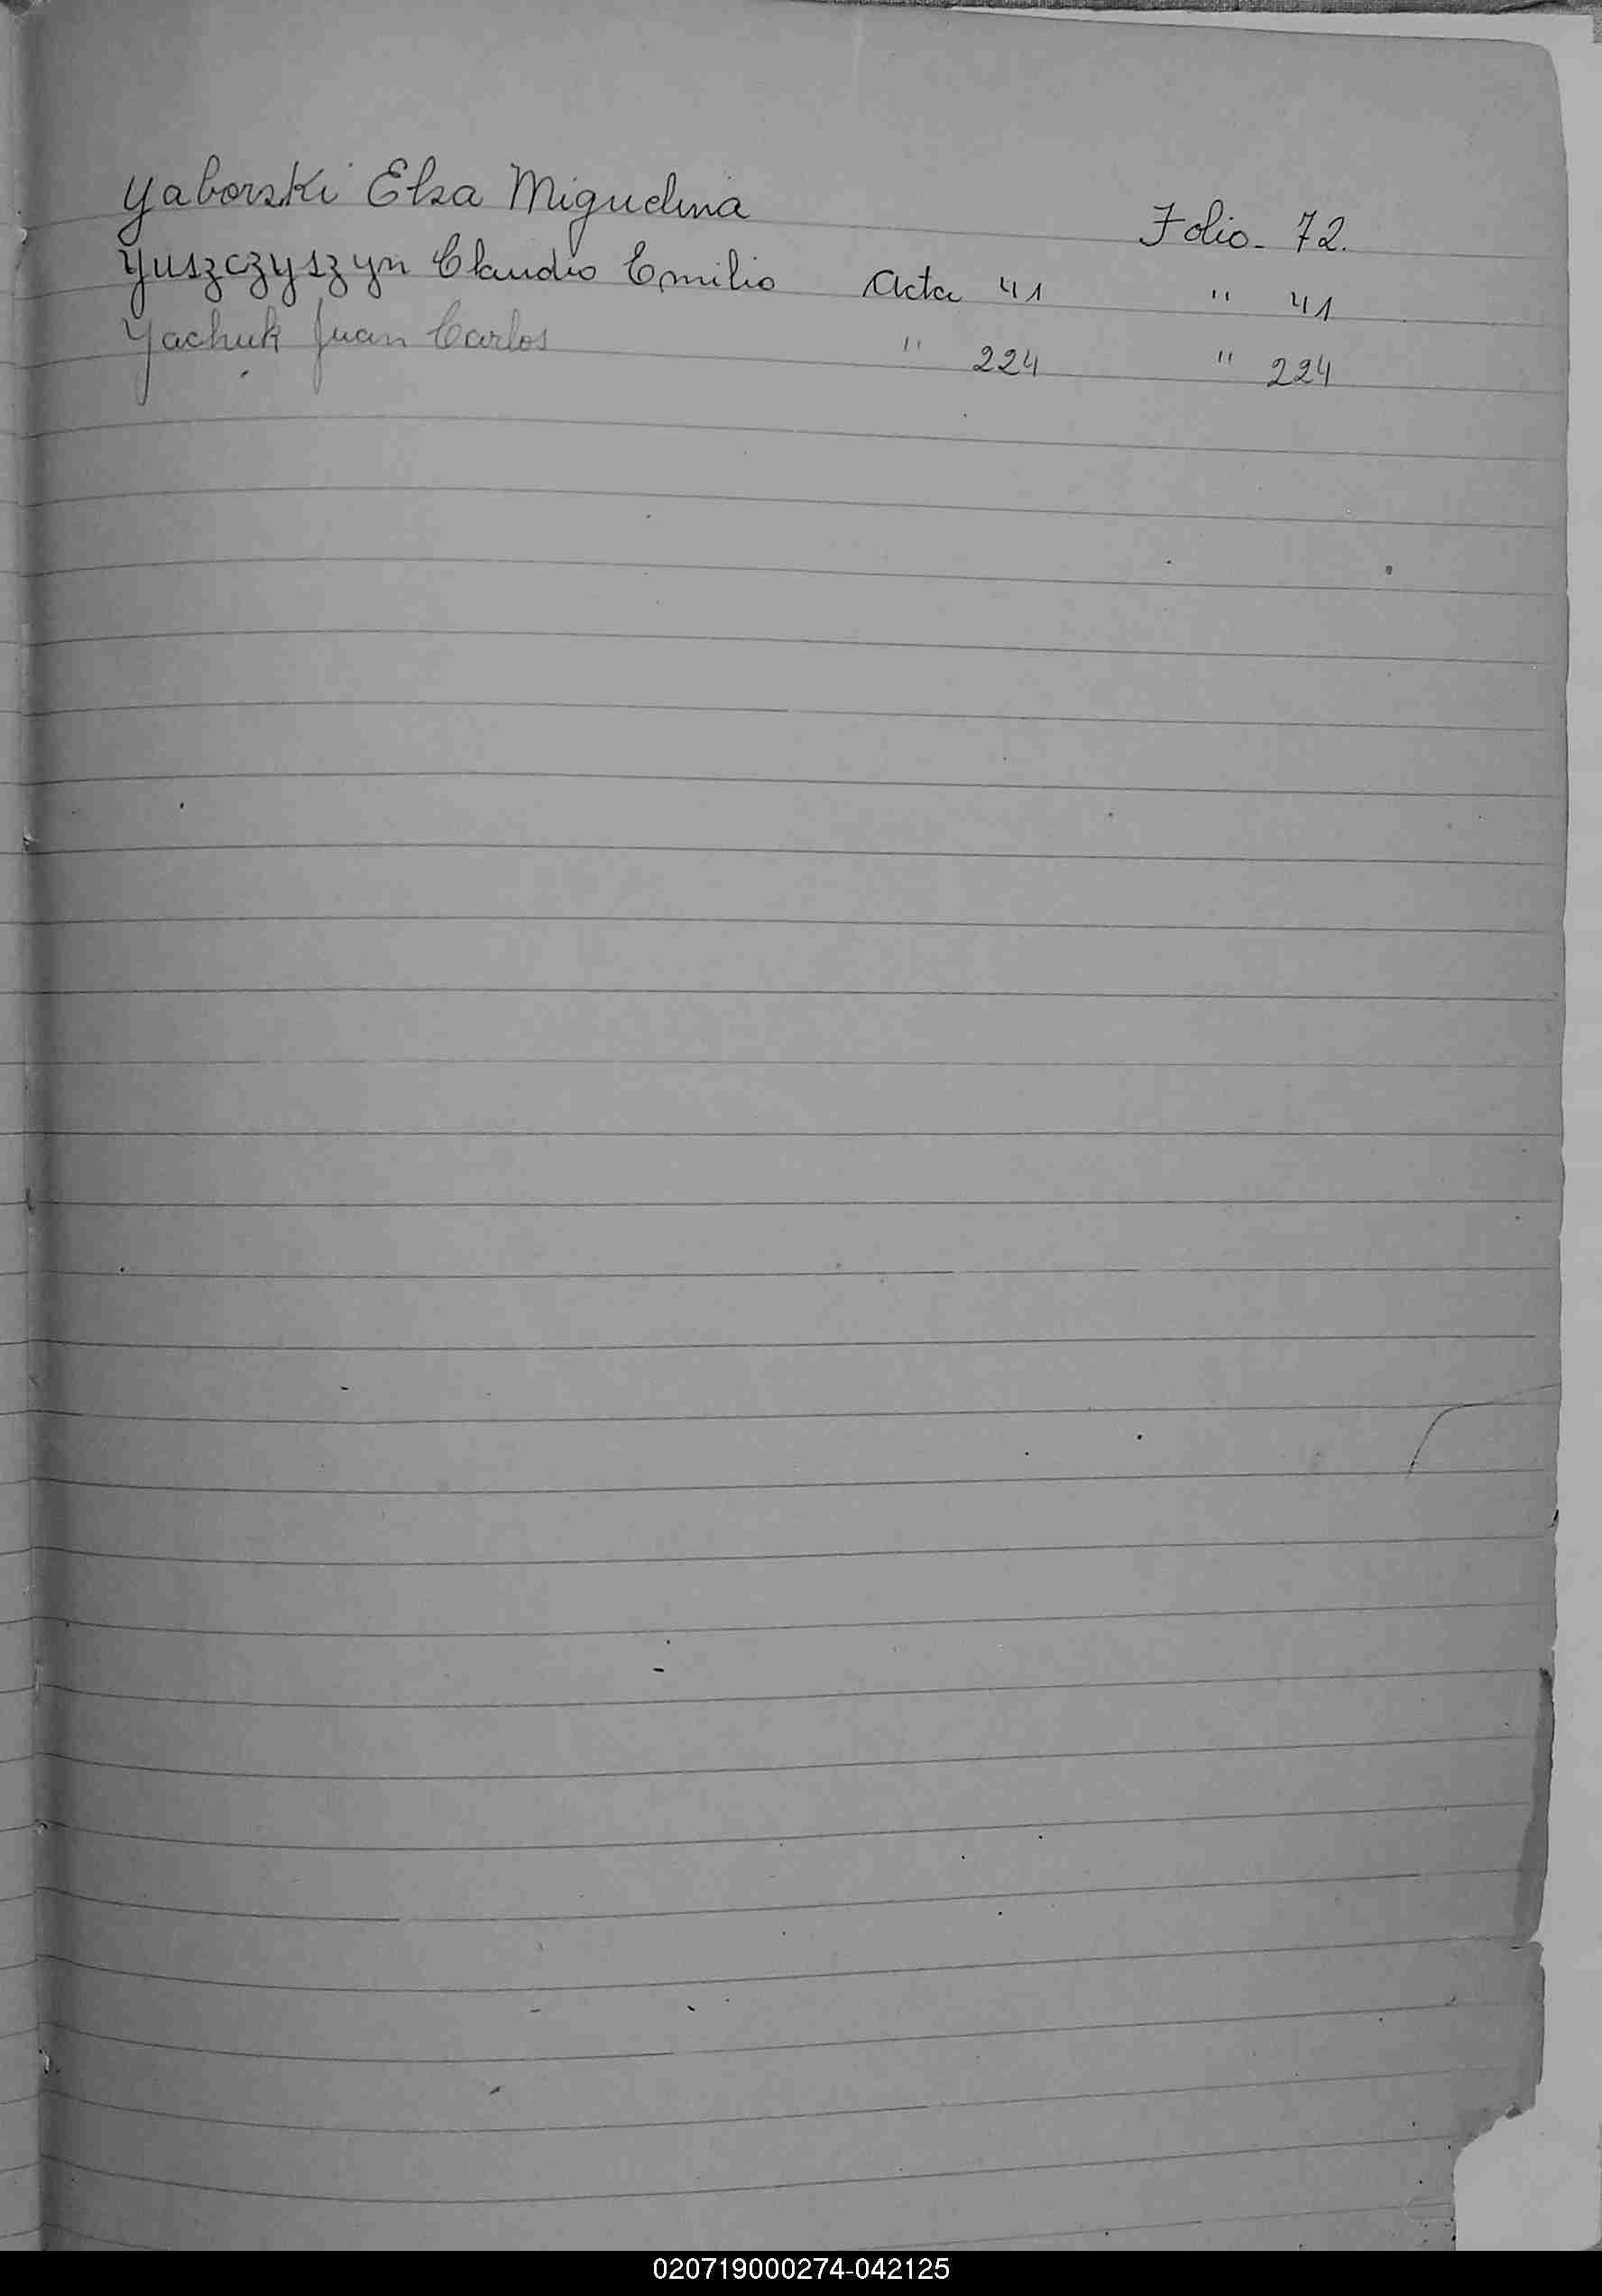 Yaborski Elsa Miguelina Folio - 72.
Yuszczyszyn Claudio Emilio Acta 41 " 41
Yachuk Juan Carlos " 224 " 224
020719000274-042125